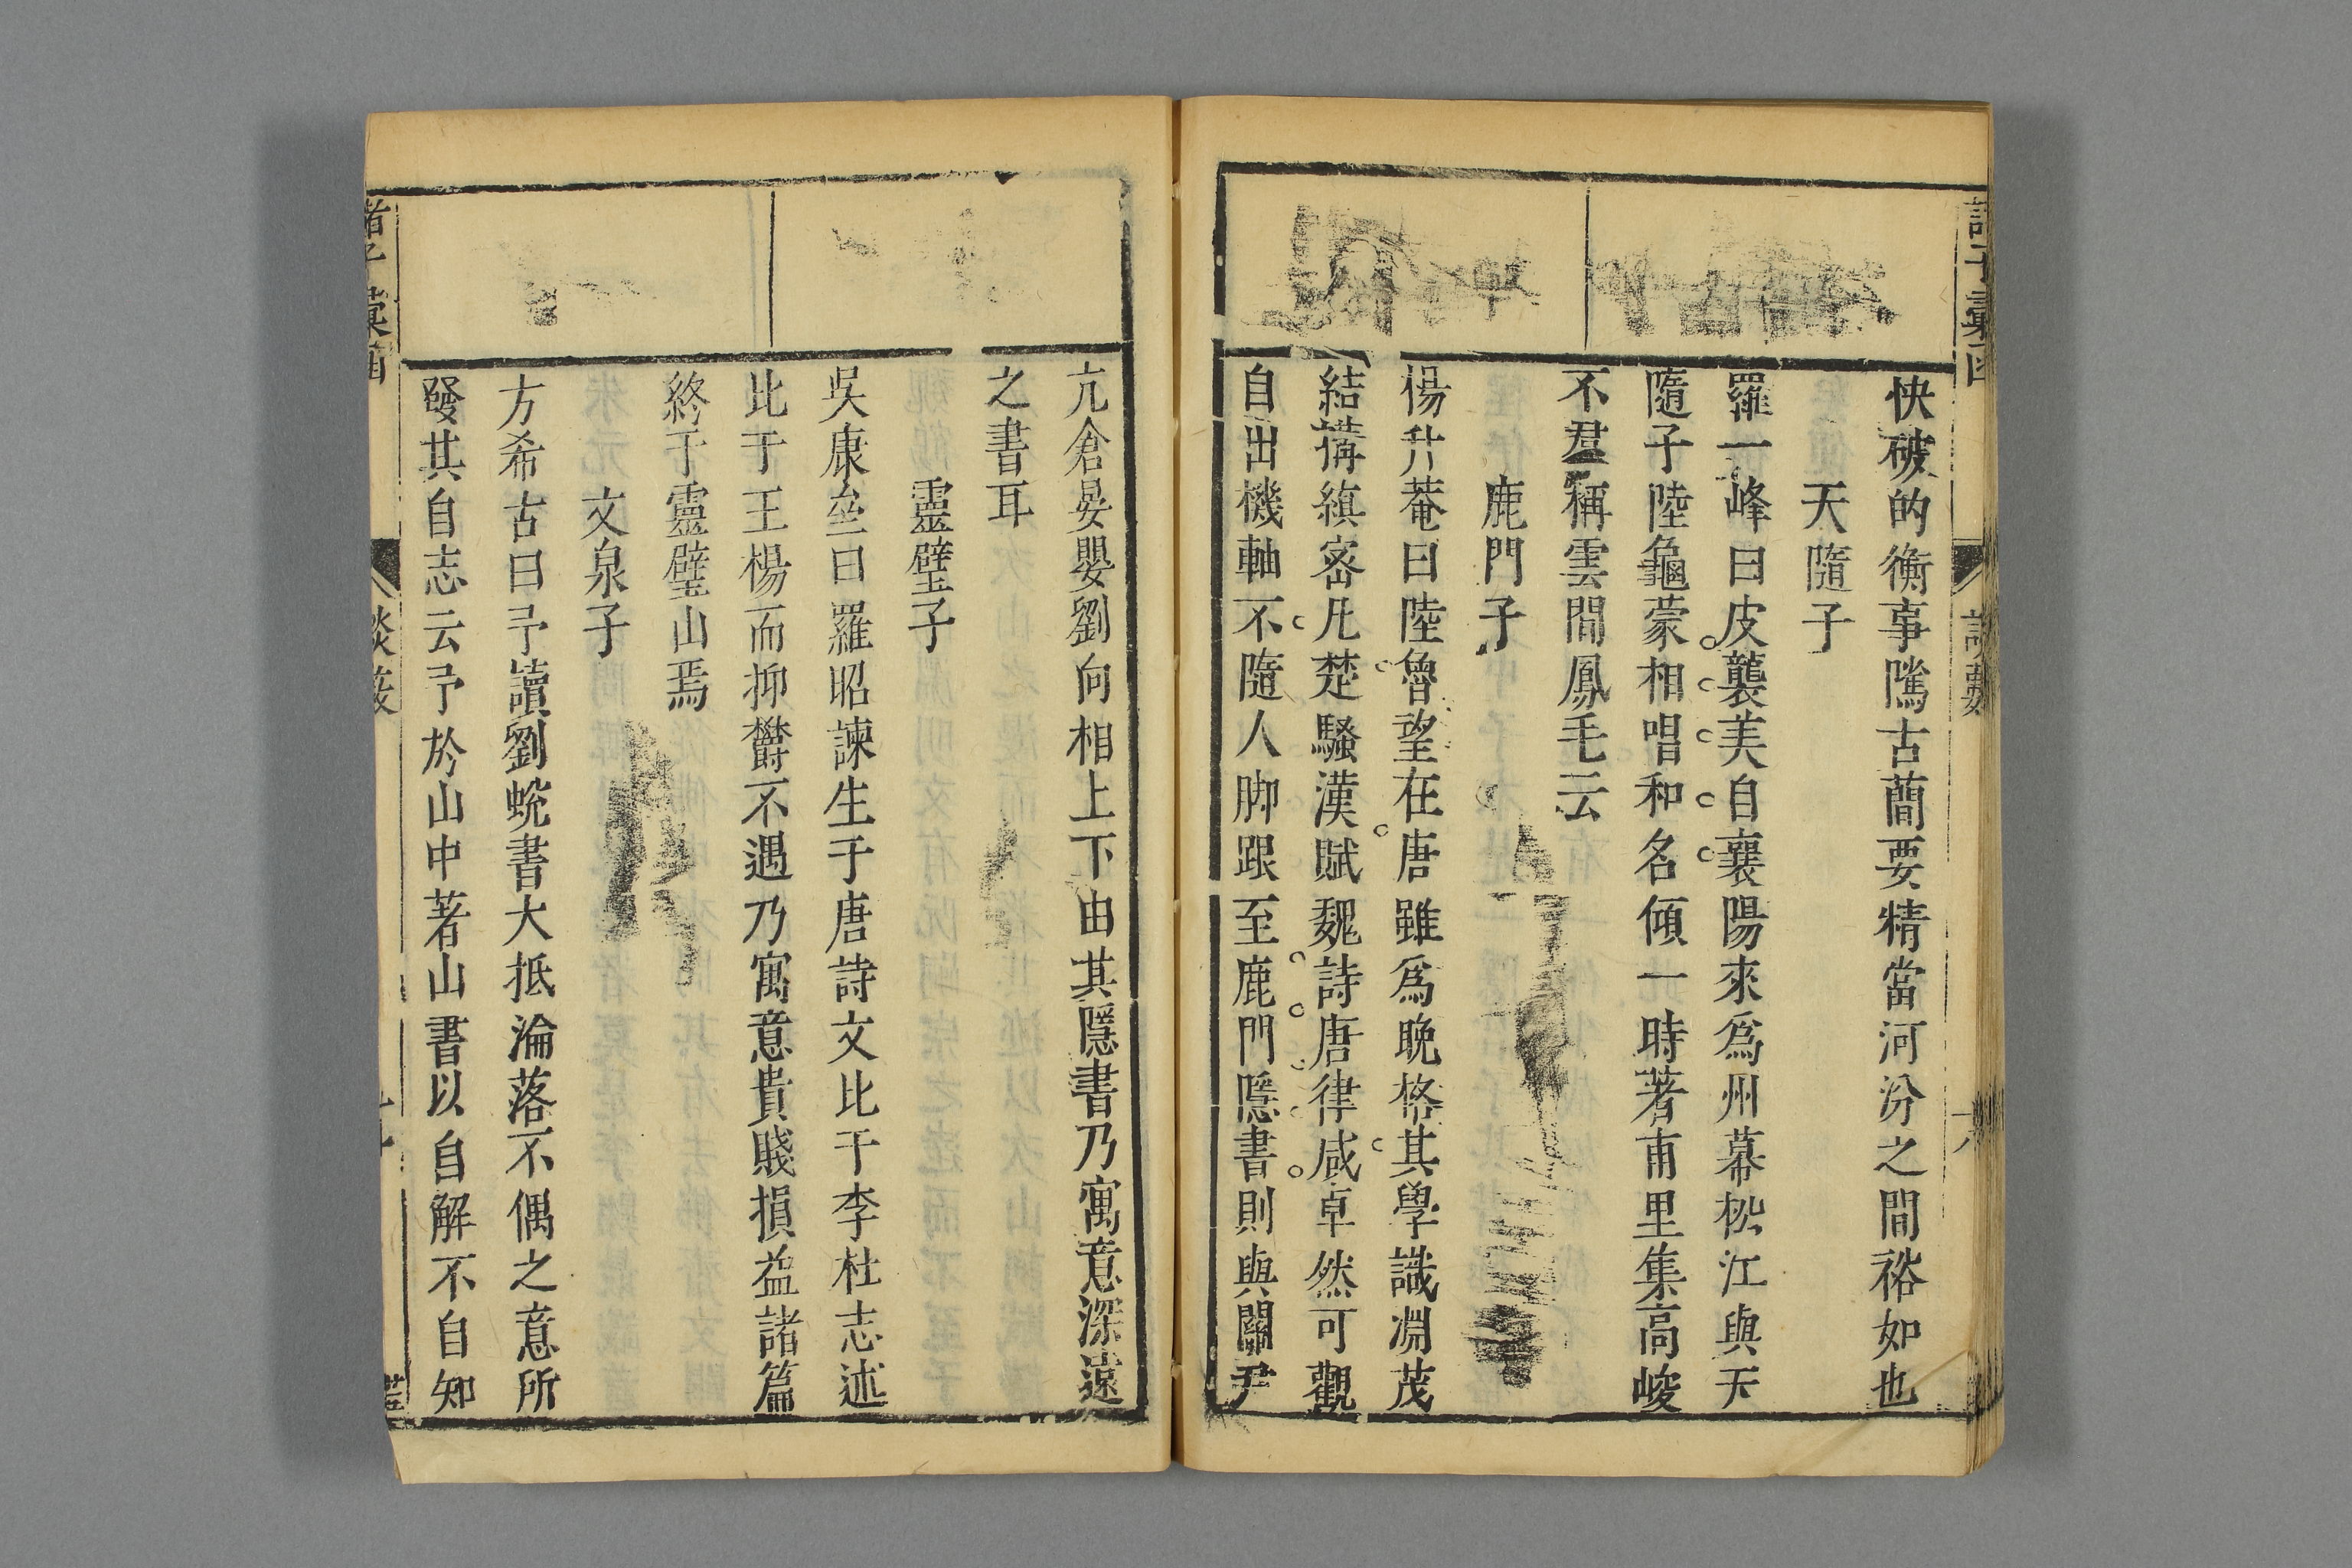 快破的衡事隲古蕳要精當河汾之間裕如也
天隨子
羅一峰曰皮襲美自襄陽來爲州幕松江與天
隨子陸龜蒙相唱和名傾一時著甫里集高峻
不羣稱雲間鳳毛云
鹿門子
楊升菴曰陸魯望在唐雖爲晚格其學識淵茂
結搆縝宻凡楚騷漢賦魏詩唐律咸卓然可觀
自出機軸不隨人脚跟至鹿門隱書則與關尹
亢倉晏嬰劉向相上下由其隱書乃寓意深遠
之書耳
靈璧子
吳康垒曰羅昭諫生于唐詩文比干李杜志述
比于王楊而抑欝不遇乃寓意貴賤損益諸篇
終于靈璧山焉
文泉子
方希古曰予讀劉蛻書大抵淪落不偶之意所
發其自志云予於山中著山書以自解不自知